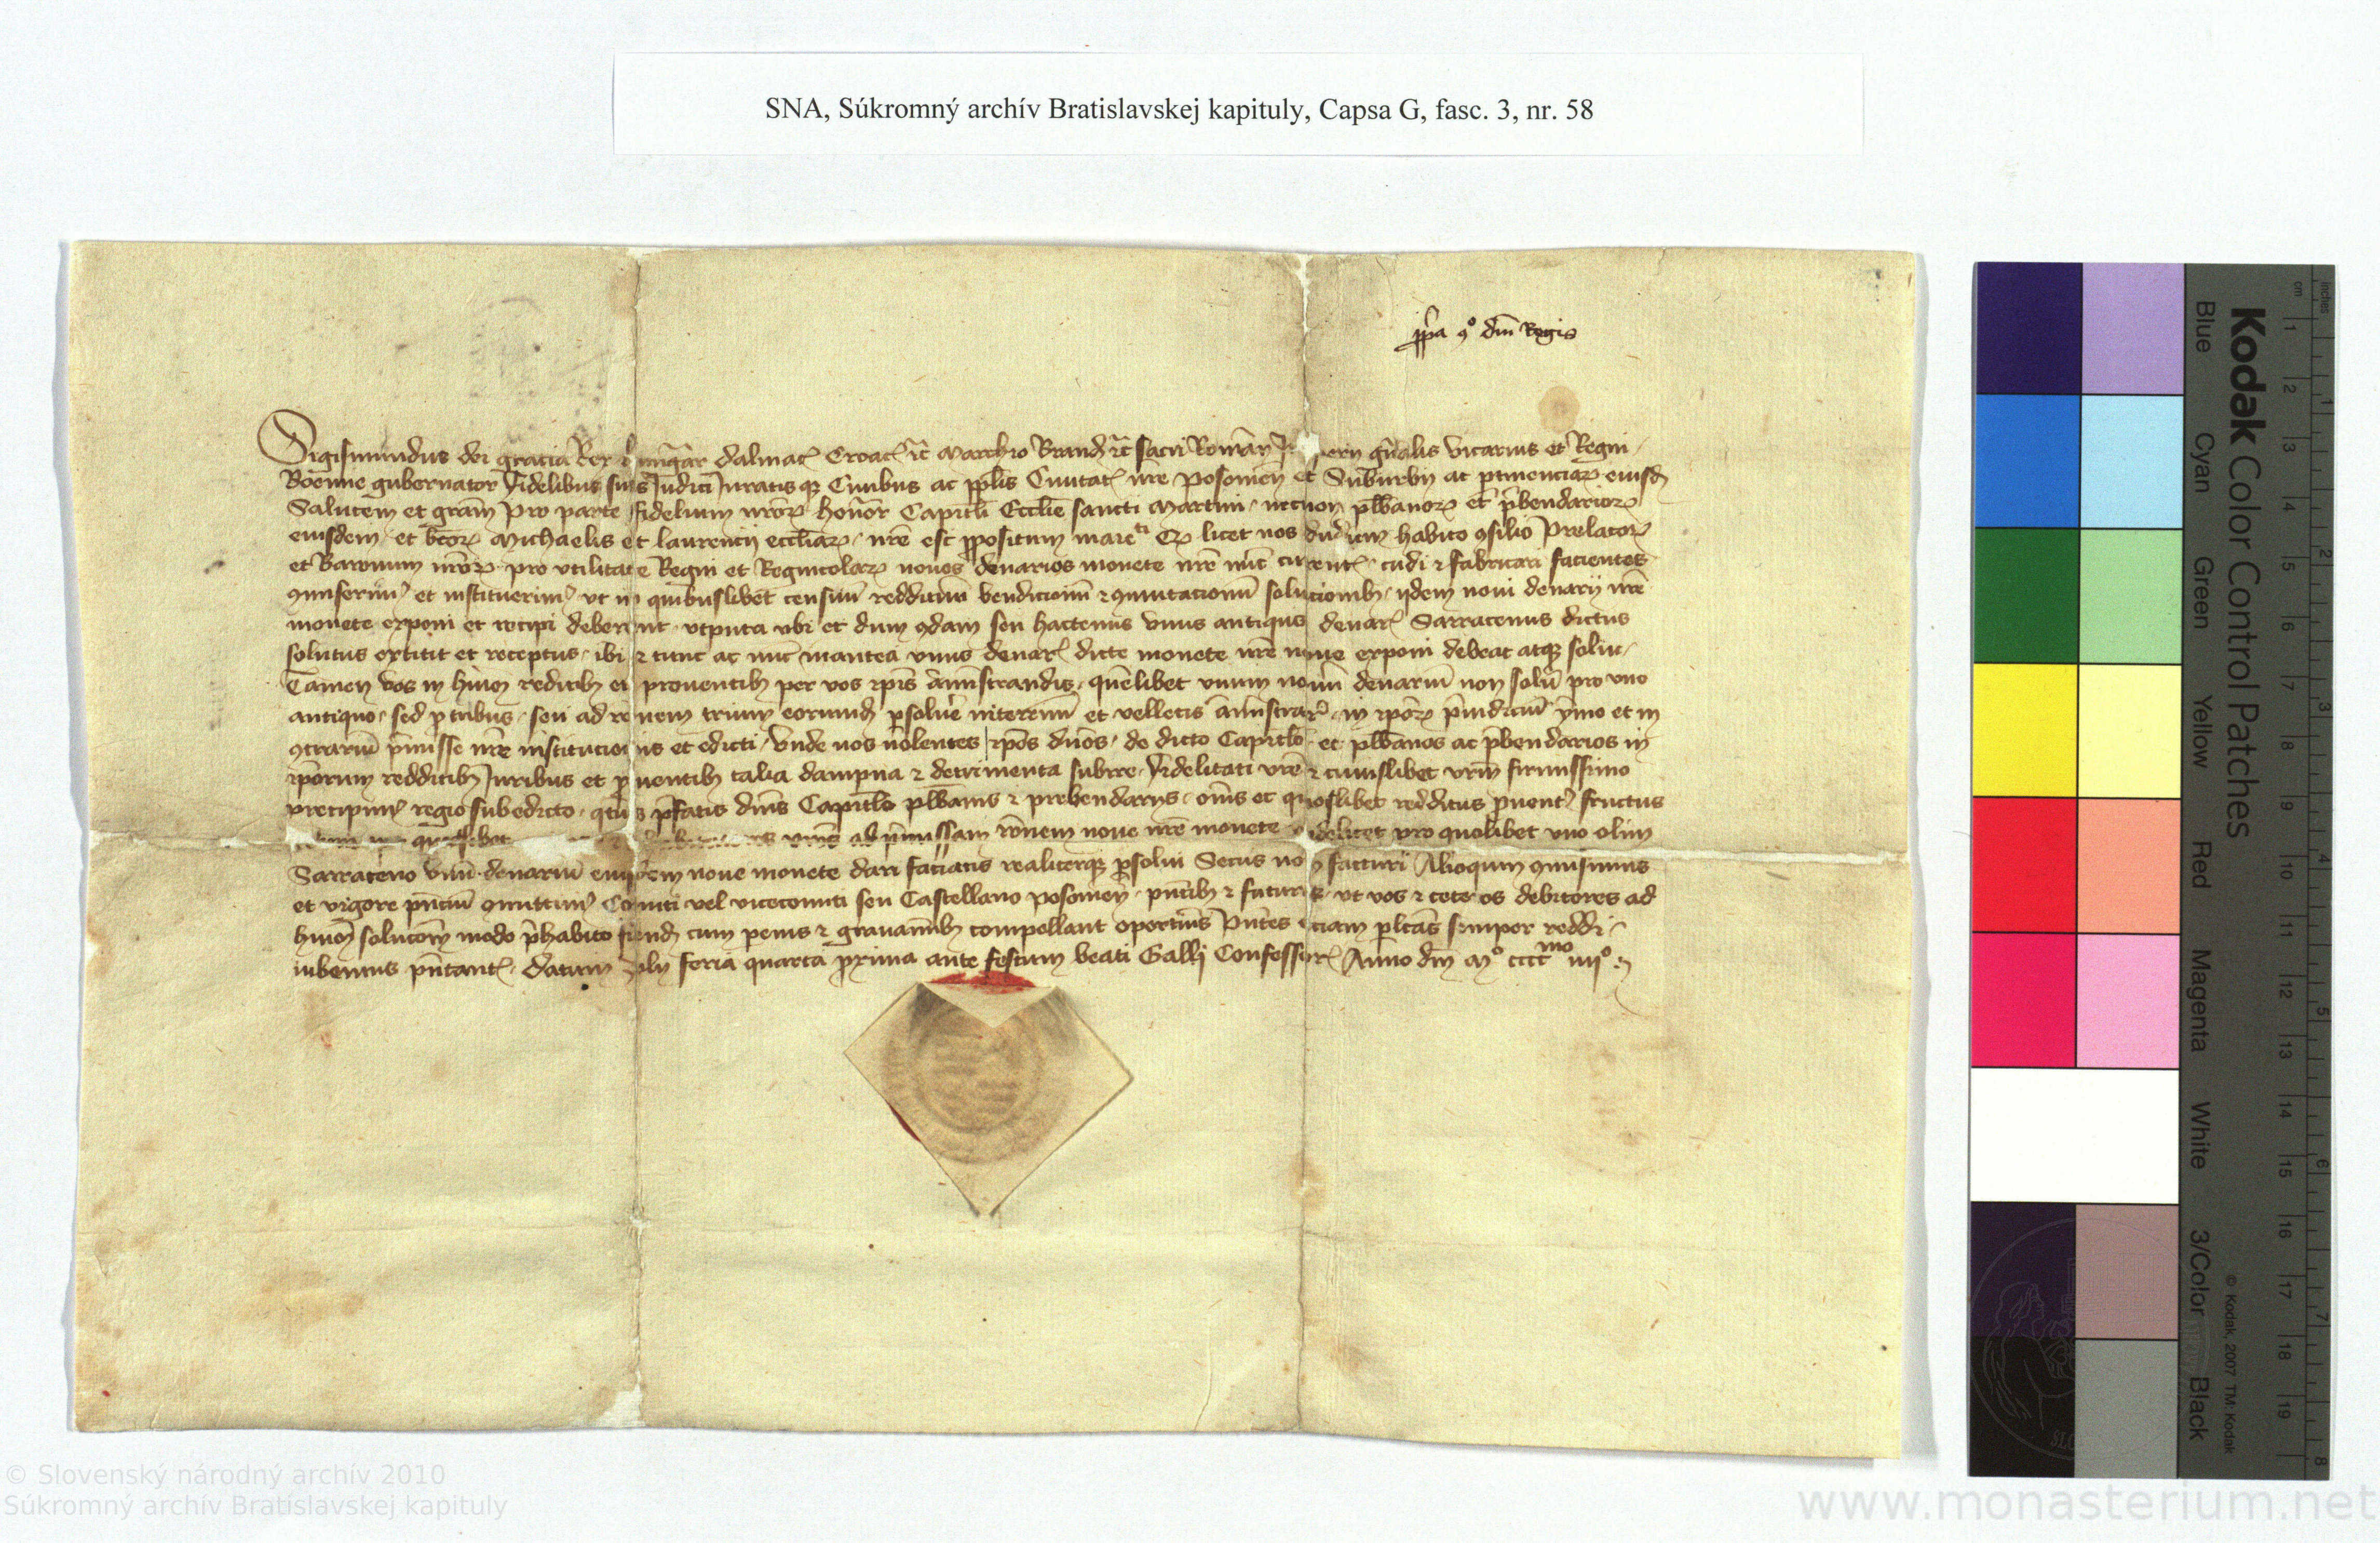 SNA, Súkromný archív Bratislavskej kapituly, Capsa G, fasc. 3, nr. 58
dni Regis
Sigismundus dei gracia Rex hungar dalmac Croac etc Marchio Brand etc sacri Roman Imperii gnalis vicarius et Regni
Boemie gubernator fidelibus suis Judici Juratisque Civibus ac pplis Civitat nre Posonien et Suburbii ac ptinenciarum eiusd
Salutem et gram Pro parte fidelium nrorum honor Capitli Ecclie sancti Martini necnon plbanorum et pbendariorum
eiusdem et btorum Michaelis et laurencii eccliarum nre est ppositum maiesti Quod licet nos dudum habito consilio Prelatorum
et Baronum nrorum pro utilitate Regni et Regnicolarum novos denarios monete nre nunc current cudi et fabricari facientes
commiserim et instituerim ut in quibuslibet censuum reddituum vendicionum et commutacionum solucionib iidem novi denarii nre
monete exponi et recipi deberent utputa ubi et dum quondam seu hactenus unus antiquus denar Sarracenus dictus
solutus extitit et receptus ibi et tunc ac nunc inantea unus denar dicte monete nre nove exponi debeat atque solui
Tamen vos in hmoi redditib et proventib per vos ipis amistrandis quelibet unum novum denarium non solum pro uno
antiquo sed p tribus seu ad racionem trium eorumd psolvere niteremini et velletis amistrare in ipsorum preiudicium ymo et in
contrarium pmisse nre institucionis et edicti Unde nos nolentes ipos dnos de dicto Capitlo et plbanos ac pbendarios in
iporum redditib Juribus et pventib talia dampna et detrimenta subire fidelitati vre et cuiuslibet vrm firmissimo
precipimus regio sub edicto qtus pfatis dnis Capitlo plbanis et prebendariis omnes et quoslibet redditus pvent fructus
quoslibet debitores vros ad pmissam ronem nove nre monete videlicet pro quolibet uno olim
Sarraceno unum denarium eiusdem nove monete dari faciatis realiterque psolvi Secus non facturi Alioquin commisimus
et vigore pncium committimus Comiti vel vicecomiti seu Castellano Posonien pntib et futuris ut vos et ceteros debitores ad
hmoi solucoem modo phabito fiend cum penis et gravaminib compellant oportunis Pntes eciam plectas semper reddi
iubemus pntanti datum Solii feria quarta proxima ante festum beati Galli Confessor Anno dni Mo ccccmo iiiio
Kodak Color Control Patches
Blue
Cyan
Green
Yellow
Red
Magenta
White
3/Color
Black
© Kodak, 2007 TM: Kodak
cm 1 2 3 4 5 6 7 8 9 10 11 12 13 14 15 16 17 18 19
inches 1 2 3 4 5 6 7 8
© Slovenský národný archív 2010
Súkromný archív Bratislavskej kapituly
www.monasterium.net